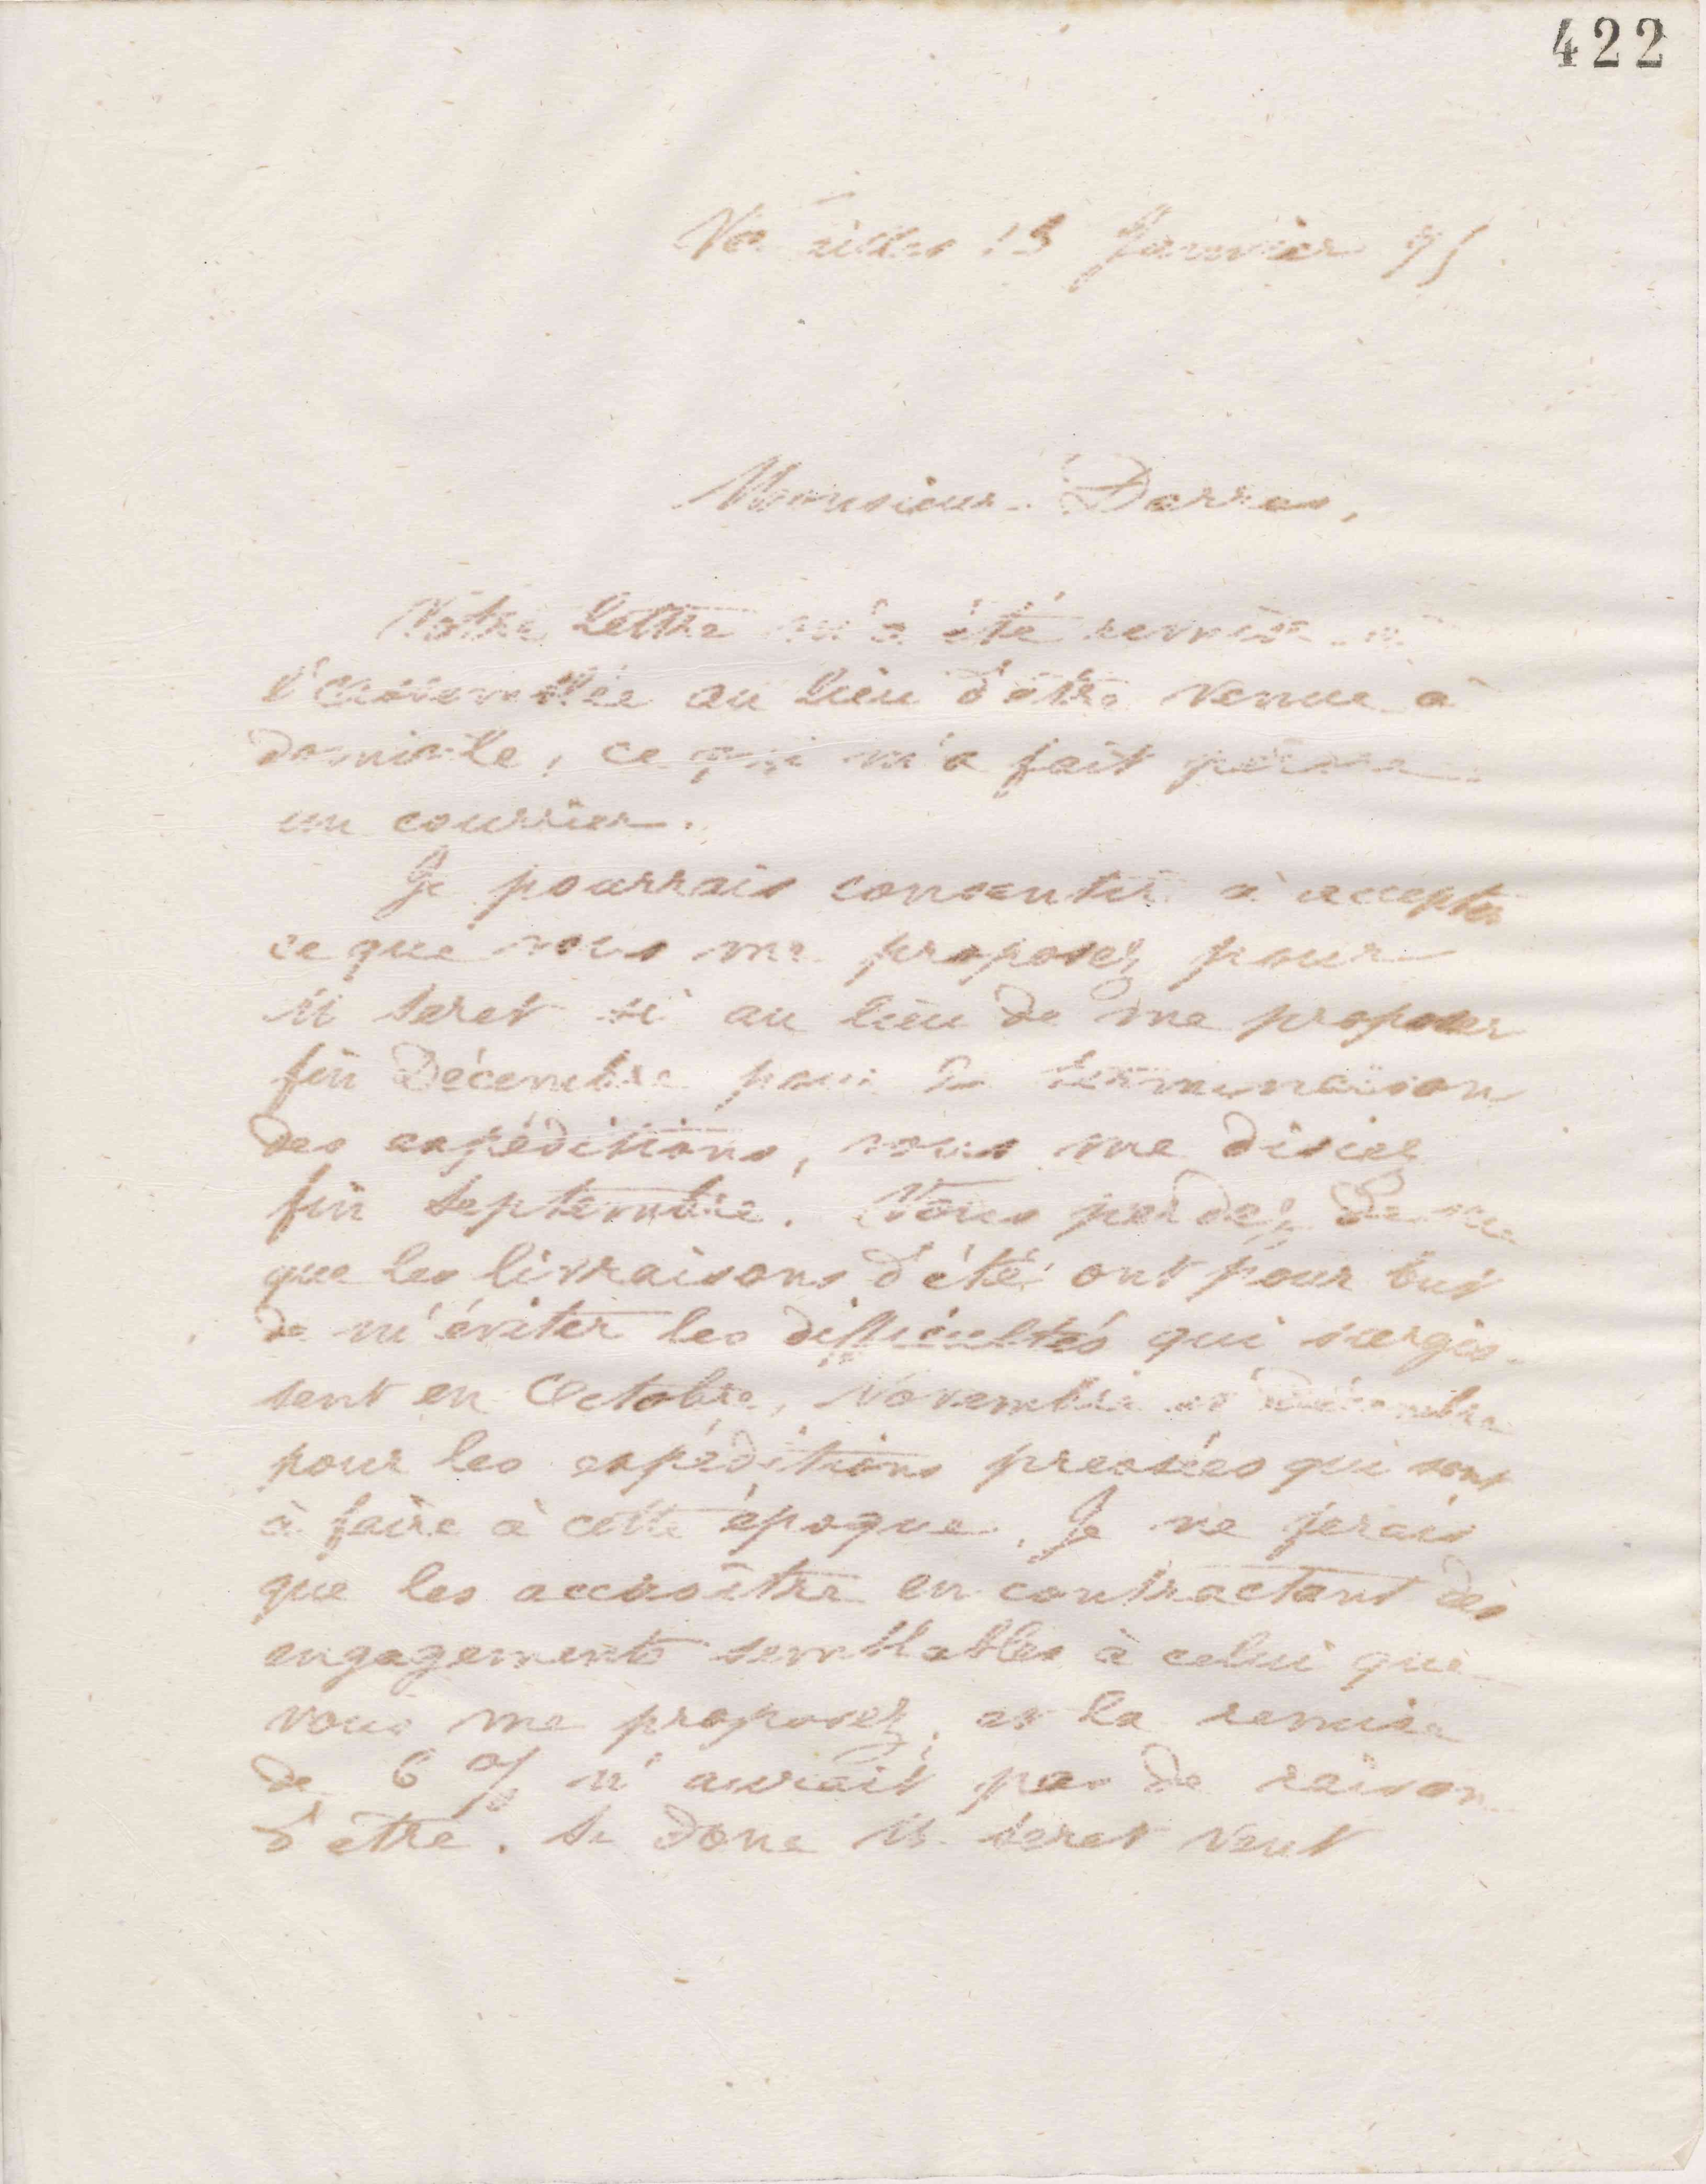 422
Versailles 13 Janvier 75
Monsieur
Votre lettre m'a été remise à
l'assemblée au lieu d'être venue à
domicile, ce qui m'a fait perdre
un courrier.
Je pourrais consentir à accepter
ce que vous me proposez pour
M Seret si au lieu de me proposer
fin Décembre pour la terminaison
des expéditions, vous me disiez
fin Septembre. Vous perdez de vue
que les livraisons d'été ont pour but
de m'éviter les difficultés qui surgis-
sent en Octobre, Novembre et Décembre
pour les expéditions pressées qui sont
à faire à cette époque. Je ne ferais
que les accroître en contractant des
engagements semblables à celui que
vous me proposez, et la remise
de 6 % n'aurait pas de raison
d'être. Si donc M. Seret veut